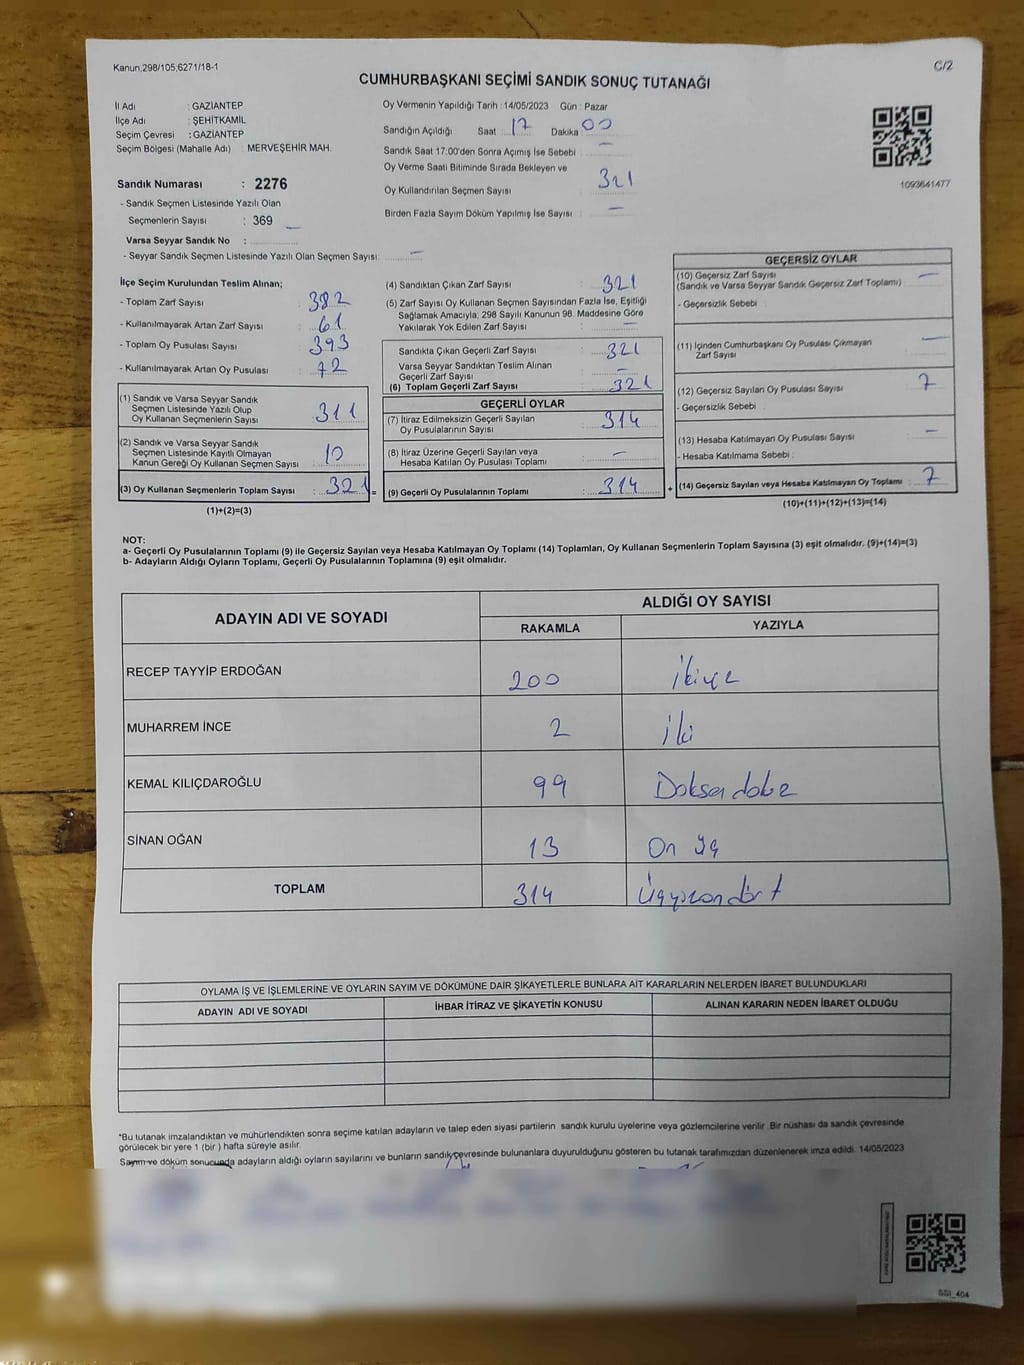 Kanun,298/105,6271/18-1
C/2
CUMHURBAŞKANI SEÇİMİ SANDIK SONUÇ TUTANAĞI
İl Adı : GAZİANTEP
İlçe Adı : ŞEHİTKAMİL
Seçim Çevresi : GAZİANTEP
Seçim Bölgesi (Mahalle Adı) : MERVEŞEHİR MAH.
Sandık Numarası : 2276
- Sandık Seçmen Listesinde Yazılı Olan
Seçmenlerin Sayısı : 369
Varsa Seyyar Sandık No :
- Seyyar Sandık Seçmen Listesinde Yazılı Olan Seçmen Sayısı: —
Oy Vermenin Yapıldığı Tarih : 14/05/2023 Gün : Pazar
Sandığın Açıldığı Saat : 17 Dakika : 00
Sandık Saat 17:00'den Sonra Açımış İse Sebebi : —
Oy Verme Saati Bitiminde Sırada Bekleyen ve
Oy Kullandırılan Seçmen Sayısı : 321
Birden Fazla Sayım Döküm Yapılmış İse Sayısı : —
1093641477
İlçe Seçim Kurulundan Teslim Alınan;
- Toplam Zarf Sayısı : 382
- Kullanılmayarak Artan Zarf Sayısı : 61
- Toplam Oy Pusulası Sayısı : 393
- Kullanılmayarak Artan Oy Pusulası : 72
(1) Sandık ve Varsa Seyyar Sandık
Seçmen Listesinde Yazılı Olup
Oy Kullanan Seçmenlerin Sayısı : 311
(2) Sandık ve Varsa Seyyar Sandık
Seçmen Listesinde Kayıtlı Olmayan
Kanun Gereği Oy Kullanan Seçmen Sayısı : 10
(3) Oy Kullanan Seçmenlerin Toplam Sayısı : 321 =
(1)+(2)=(3)
(4) Sandıktan Çıkan Zarf Sayısı : 321
(5) Zarf Sayısı Oy Kullanan Seçmen Sayısından Fazla İse, Eşitliği
Sağlamak Amacıyla; 298 Sayılı Kanunun 98. Maddesine Göre
Yakılarak Yok Edilen Zarf Sayısı : —
Sandıkta Çıkan Geçerli Zarf Sayısı : 321
Varsa Seyyar Sandıktan Teslim Alınan
Geçerli Zarf Sayısı : —
(6) Toplam Geçerli Zarf Sayısı : 321
GEÇERLİ OYLAR
(7) İtiraz Edilmeksizin Geçerli Sayılan
Oy Pusulalarının Sayısı : 314
(8) İtiraz Üzerine Geçerli Sayılan veya
Hesaba Katılan Oy Pusulası Toplamı : —
(9) Geçerli Oy Pusulalarının Toplamı : 314 +
GEÇERSİZ OYLAR
(10) Geçersiz Zarf Sayısı : —
(Sandık ve Varsa Seyyar Sandık Geçersiz Zarf Toplamı)
- Geçersizlik Sebebi :
(11) İçinden Cumhurbaşkanı Oy Pusulası Çıkmayan : —
Zarf Sayısı
(12) Geçersiz Sayılan Oy Pusulası Sayısı : 7
- Geçersizlik Sebebi :
(13) Hesaba Katılmayan Oy Pusulası Sayısı : —
- Hesaba Katılmama Sebebi :
(14) Geçersiz Sayılan veya Hesaba Katılmayan Oy Toplamı : 7
(10)+(11)+(12)+(13)=(14)
NOT:
a- Geçerli Oy Pusulalarının Toplamı (9) ile Geçersiz Sayılan veya Hesaba Katılmayan Oy Toplamı (14) Toplamları, Oy Kullanan Seçmenlerin Toplam Sayısına (3) eşit olmalıdır. (9)+(14)=(3)
b- Adayların Aldığı Oyların Toplamı, Geçerli Oy Pusulalarının Toplamına (9) eşit olmalıdır.
ADAYIN ADI VE SOYADI
ALDIĞI OY SAYISI
RAKAMLA YAZIYLA
RECEP TAYYİP ERDOĞAN 200 İkiyüz
MUHARREM İNCE 2 İki
KEMAL KILIÇDAROĞLU 99 Doksandokuz
SİNAN OĞAN 13 On üç
TOPLAM 314 Üçyüzondört
OYLAMA İŞ VE İŞLEMLERİNE VE OYLARIN SAYIM VE DÖKÜMÜNE DAİR ŞİKAYETLERLE BUNLARA AİT KARARLARIN NELERDEN İBARET BULUNDUKLARI
ADAYIN ADI VE SOYADI İHBAR İTİRAZ VE ŞİKAYETİN KONUSU ALINAN KARARIN NEDEN İBARET OLDUĞU
*Bu tutanak imzalandıktan ve mühürlendikten sonra seçime katılan adayların ve talep eden siyasi partilerin sandık kurulu üyelerine veya gözlemcilerine verilir .Bir nüshası da sandık çevresinde
görülecek bir yere 1 (bir ) hafta süreyle asılır.
Sayım ve döküm sonucunda adayların aldığı oyların sayılarını ve bunların sandık çevresinde bulunanlara duyurulduğunu gösteren bu tutanak tarafımızdan düzenlenerek imza edildi. 14/05/2023